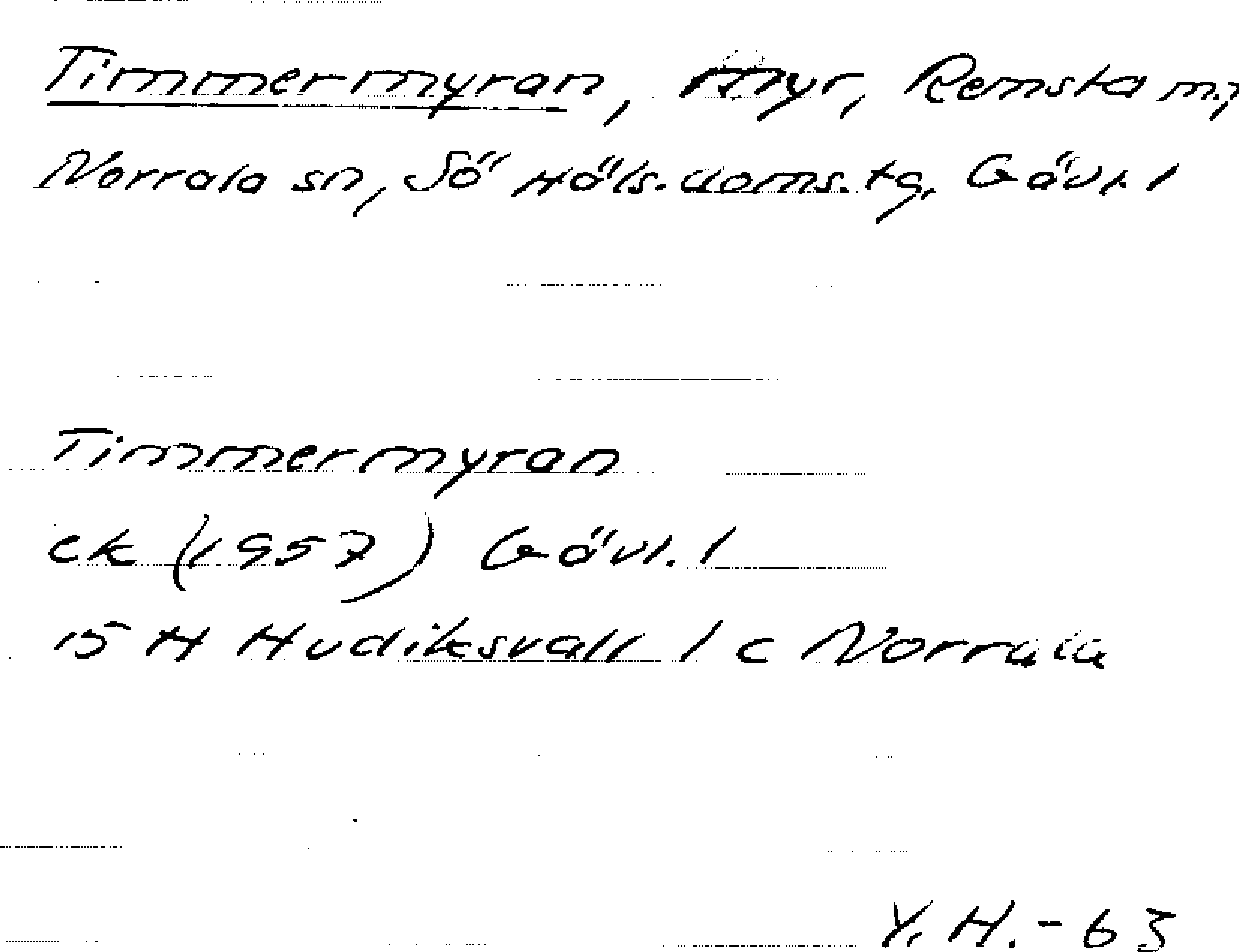 Timmermyran, Myr, Remsta m.,
Norrala sn, Sö Häls. doms. tg, Gävl. l
Timmermyran
ek (1957) Gävl. l
15 H Hudiksvall 1 c Norrala
Y. H. - 63